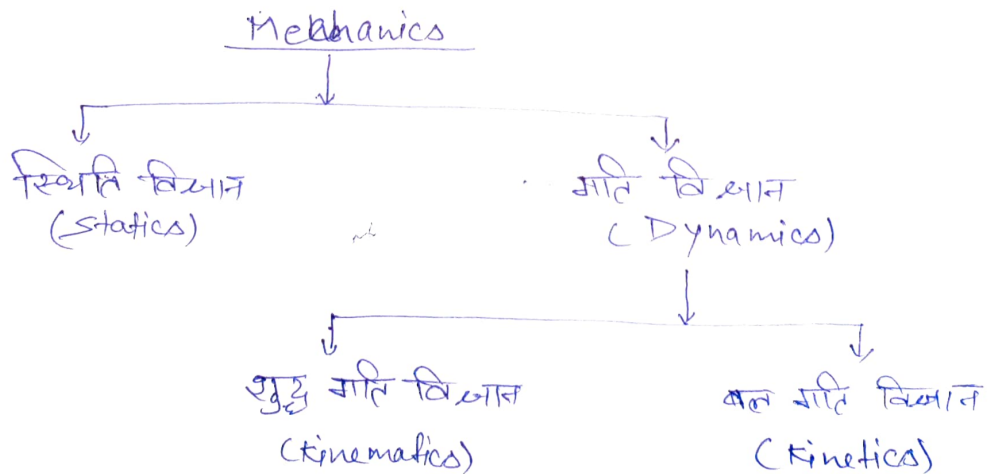 Mechanics
स्थिति विज्ञान
(Statics)
गति विज्ञान
(Dynamics)
शुद्ध गति विज्ञान
(Kinematics)
बल गति विज्ञान
(Kinetics)